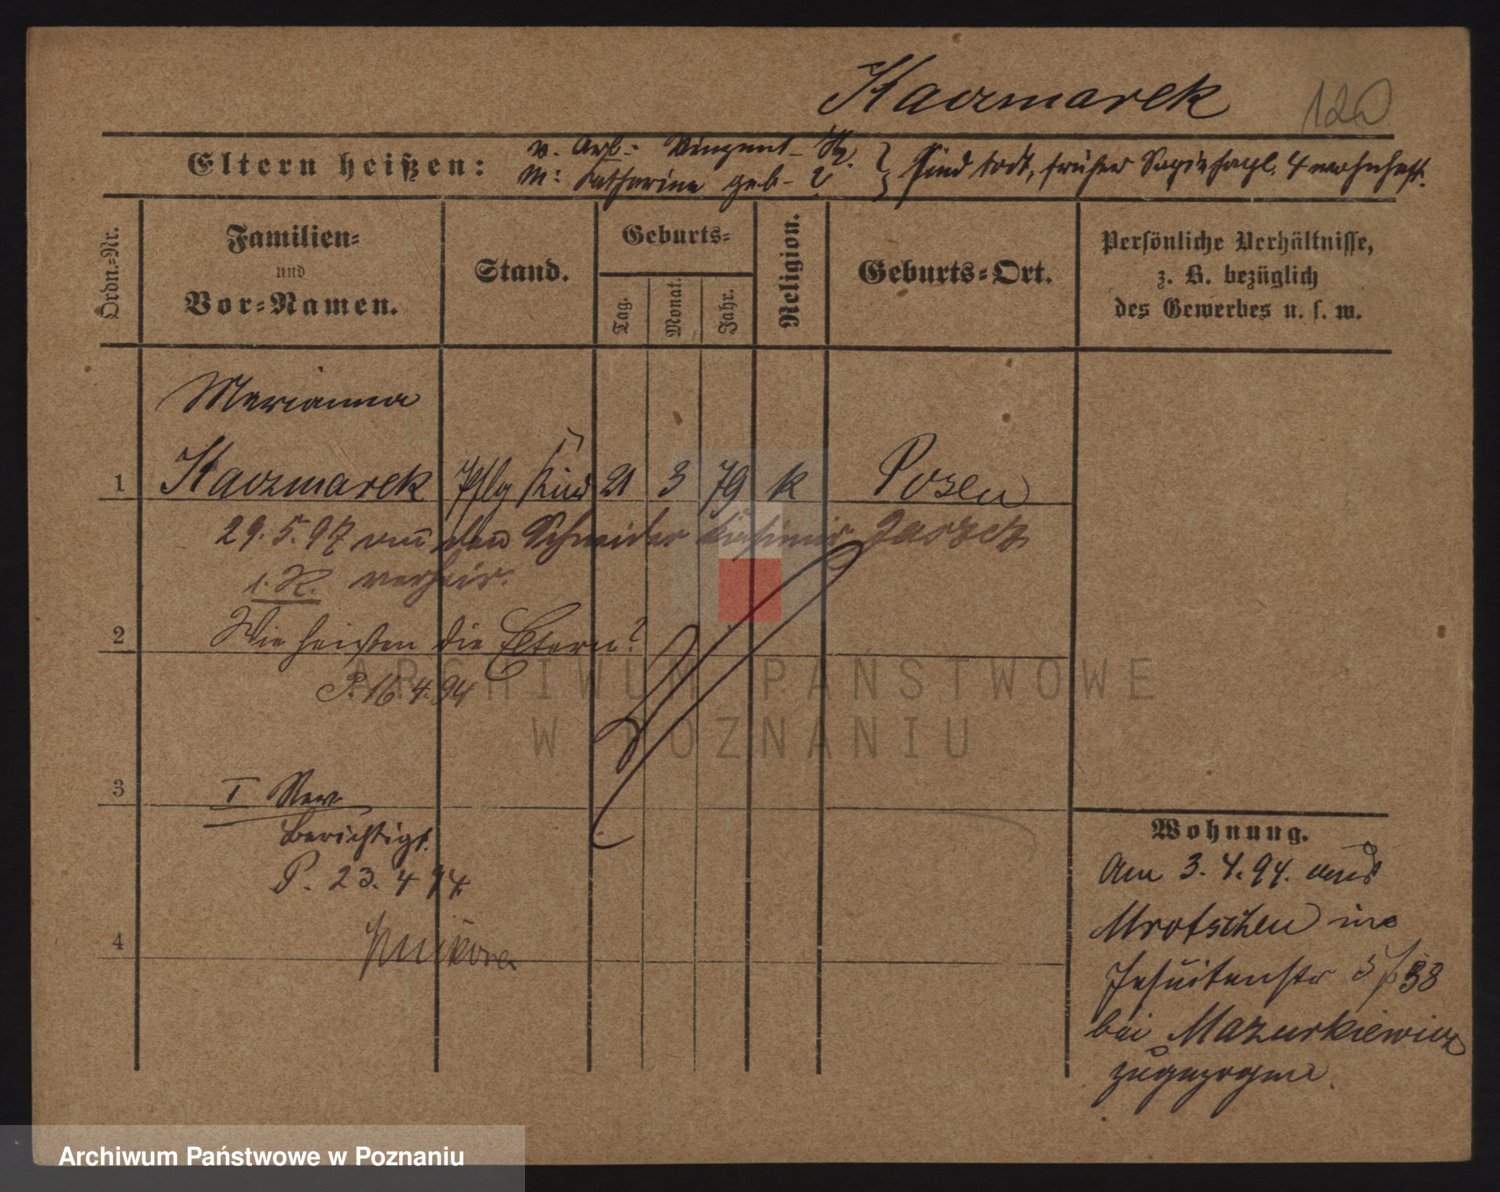 Kaczmarek 120
Eltern heißen: V. Arb. Vinzent
M: Katharina geb. ? } sind todt, früher Sapiehapl. 4 wohnhaft.
Ordn.-Nr.
Familien-
und
Vor-Namen.
Stand.
Geburts-
Tag.
Monat.
Jahr.
Religion.
Geburts-Ort.
Persönliche Verhältnisse,
z. B. bezüglich
des Gewerbes u. s. w.
Marianna
1 Kaczmarek Pflg Kind 21 3 79 k Posen
29.5.97 den Schneider Kasimir
verheir.
2 Wie heißen die Eltern?
P. 16 4. 94
3 I Rev
Berichtigt.
P. 23. 4 94
4
Wohnung.
Am 3. 4. 94. aus
Mrotschen in
Jesuitenstr 5
bei Mazurkiewicz
zugezogen.
ARCHIWUM PAŃSTWOWE
W POZNANIU
Archiwum Państwowe w Poznaniu